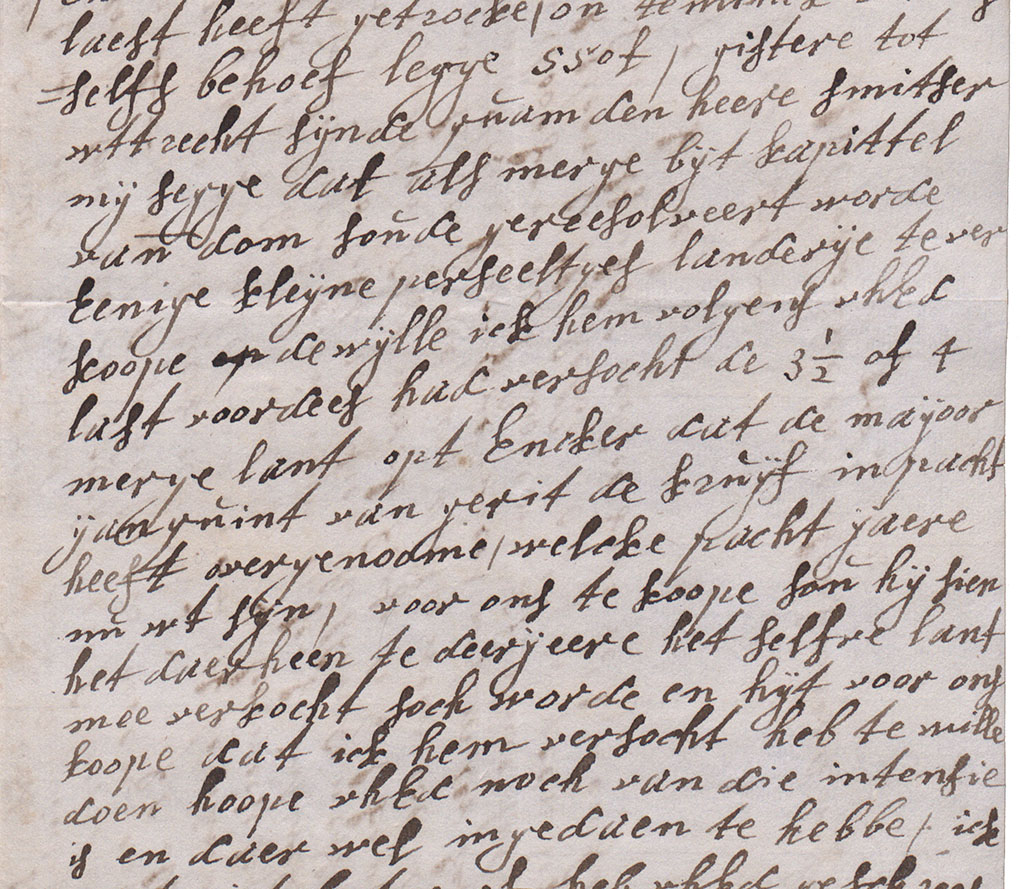 laest heeft getrocke, on
selfs behoef legge 550 f, gistere tot
uttrecht sijnde quam den heere smitser
mij segge dat als merge bijt kapittel
van dom soude gereesolveert worde
eenige kleijne perseeltges landerije te ver
koope dewijlle ick hem volgens uhEd
last voordees had versocht de 3½ of 4
merge lant opt Encker dat de majoor
jan quint van gerit de kruijf in pacht
heeft overgenoome, welcke pacht jaere
nu ut sijn, voor ons te koope sou hij sien
het daer heen te deerjeere het selfve lant
mee verkocht soch worde en hijt voor ons
koope dat ick hem versocht heb te wille
doen hoope uhEd noch van die intensie
is en daer wel in gedaen te hebbe, ick